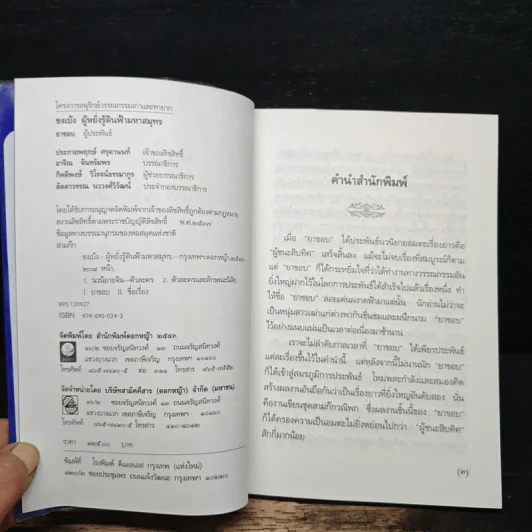 โครงการอนุรักษ์วรรณกรรมเก่าและหายาก
ขงเบ้ง ผู้หยั่งรู้ดินฟ้ามหาสมุทร
ยาขอบ ผู้ประพันธ์
ประกายพฤกษ์ ศรุตานนท์ เจ้าของลิขสิทธิ์
อาจิณ จันทรัมพร บรรณาธิการ
กิตติพงษ์ วิโรจน์ธรรมากูร ผู้ช่วยบรรณาธิการ
ลัดดาวรรณ นววงศ์วิวัฒน์ ประจำกองบรรณาธิการ
โดยได้รับการอนุญาตจัดพิมพ์จากเจ้าของลิขสิทธิ์ถูกต้องตามกฎหมาย
สงวนลิขสิทธิ์ตามพระราชบัญญัติลิขสิทธิ์ พ.ศ.๒๕๓๗
ข้อมูลทางบรรณานุกรมของหอสมุดแห่งชาติ
สามก๊ก
ขงเบ้ง - ผู้หยั่งรู้ดินฟ้ามหาสมุทร.--กรุงเทพฯ:ดอกหญ้า,๒๕๔๓
๒๐๘ หน้า.
๑. นวนิยายจีน--ตัวละคร ๒. ตัวละครและลักษณะนิสัย
I. ยาขอบ II. ชื่อเรื่อง
895.130927
ISBN 974-690-024-2
จัดพิมพ์โดย สำนักพิมพ์ดอกหญ้า ๒๕๔๓
๑๒/๒ ซอยจรัญสนิทวงศ์ ๑๓ ถนนจรัญสนิทวงศ์
แขวงบางแวก เขตภาษีเจริญ กรุงเทพฯ ๑๐๑๖๐
จัดจำหน่ายโดย บริษัทสามัคคีสาร (ดอกหญ้า) จำกัด (มหาชน)
๑๒/๒ ซอยจรัญสนิทวงศ์ ๑๓ ถนนจรัญสนิทวงศ์
แขวงบางแวก เขตภาษีเจริญ กรุงเทพฯ ๑๐๑๖๐
ราคา ๑๒๕.๐๐ บาท
พิมพ์ที่ โรงพิมพ์ ดีแอลเอส กรุงเทพ (แห่งใหม่)
๑๒๐/๒ ซอยประชุมพร ถนนแจ้งวัฒนะ กรุงเทพฯ ๑๐๒๒๐
คำนำสำนักพิมพ์
เมื่อ "ยาขอบ" ได้ประพันธ์นวนิยายอมตะเรื่องยาวคือ
"ผู้ชนะสิบทิศ" เสร็จสิ้นลง แม้จะไม่จบเรื่องที่สมบูรณ์ก็ตาม
แต่ "ยาขอบ" ก็ได้กระหยิ่มใจที่ว่าได้ทำงานทางวรรณกรรมอัน
ยิ่งใหญ่ฝากไว้ในโลกการประพันธ์ได้สำเร็จไปแล้วเรื่องหนึ่ง ทำ
ให้ชื่อ "ยาขอบ" ลอยเด่นผงาดฟ้ามาแต่นั้น นักอ่านไม่ว่าจะ
เป็นหนุ่มสาวเฒ่าแก่ต่างพากันชื่นชมและผนึกนาม "ยาขอบ"
ไว้อย่างแนบแน่นเป็นเวลาต่อเนื่องมาช้านาน
เราจะไม่ลำดับกาลเวลาที่ "ยาขอบ" ได้เพียรประพันธ์
แต่ละเรื่องขึ้นไว้ในคำนำนี้ แต่หลังจากนี้ไม่นานนัก "ยาขอบ"
ก็ได้เข้าสู่สมรภูมิการประพันธ์ โหมพละกำลังและสมองคิด
สร้างผลงานอันถือกันว่าเป็นเรื่องยาวที่ยิ่งใหญ่อันดับสอง นั่น
คืองานเขียนชุดสามก๊กวณิพก ซึ่งผลงานชิ้นนี้ของ "ยาขอบ"
ก็ได้ครองความเป็นอมตะไม่ยิ่งหย่อนไปกว่า "ผู้ชนะสิบทิศ"
สักกี่มากน้อย
(๓)